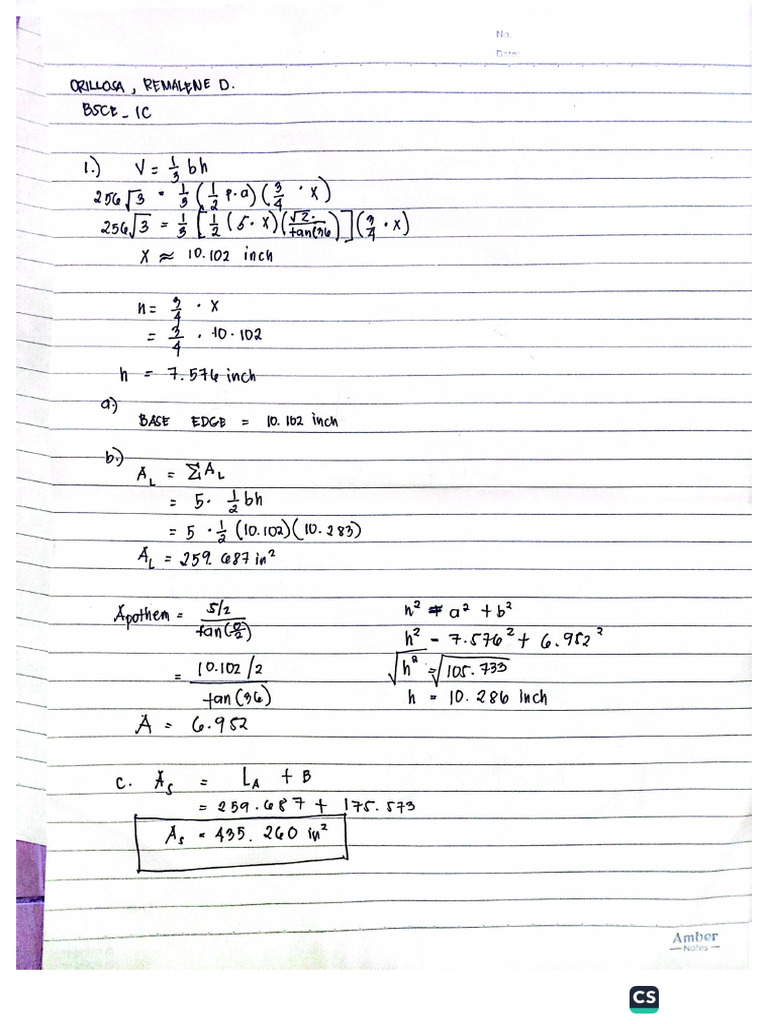 No.
Date:
ORILLOSA, REMALENE D.
BSCE - 1C
1.) V = 1/3 bh
256√3 = 1/3 (1/2 P.a) (3/4 · x)
256√3 = 1/3 [1/2 (5·x) (√2·/tan(36)] (3/4 · x)
x ≈ 10.102 inch
h = 3/4 · x
= 3/4 · 10.102
h = 7.576 inch
a.)
BASE EDGE = 10.102 inch
b.)
A_L = ΣA_L
= 5 · 1/2 bh
= 5 · 1/2 (10.102)(10.283)
A_L = 259.687 in²
Apothem = s/2 / tan(θ/2)
= 10.102/2 / tan(36)
A = 6.952
h² = a² + b²
h² = 7.576² + 6.952²
√h² = √105.733
h = 10.286 inch
c. A_S = L_A + B
= 259.687 + 175.573
A_S = 435.260 in²
Amber
Notes
CS